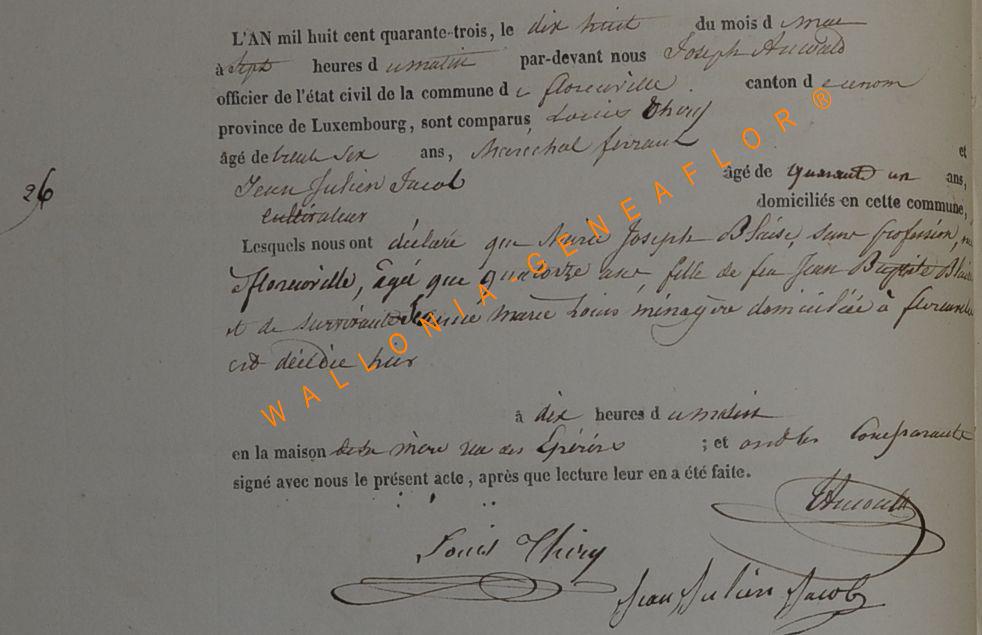 L'AN mil huit cent quarante-trois, le dix huit du mois d mai
à sept heures d u matin par-devant nous Joseph Auwald
officier de l'état civil de la commune d e florenville canton d e u nom
province de Luxembourg, sont comparus Louis Thiry
âgé de trente six ans, Maréchal ferrant et
26
Jean Julien Jacob âgé de quarante un ans,
cultivateur domiciliés en cette commune,
Lesquels nous ont déclaré que Marie Joseph Blaise, sans profession, née
florenville, âgé que quatorze ans fille de feu Jean Baptiste Blaise
et de survivante Jeanne marie Louis ménagère domiciliée à florenville
est décédée hier
à dix heures d u matin
en la maison de sa mère rue des ; et ont les Comparants
signé avec nous le présent acte, après que lecture leur en a été faite.
Louis Thiry
Jean Julien Jacob
WALLONIA-GENEAFLOR®